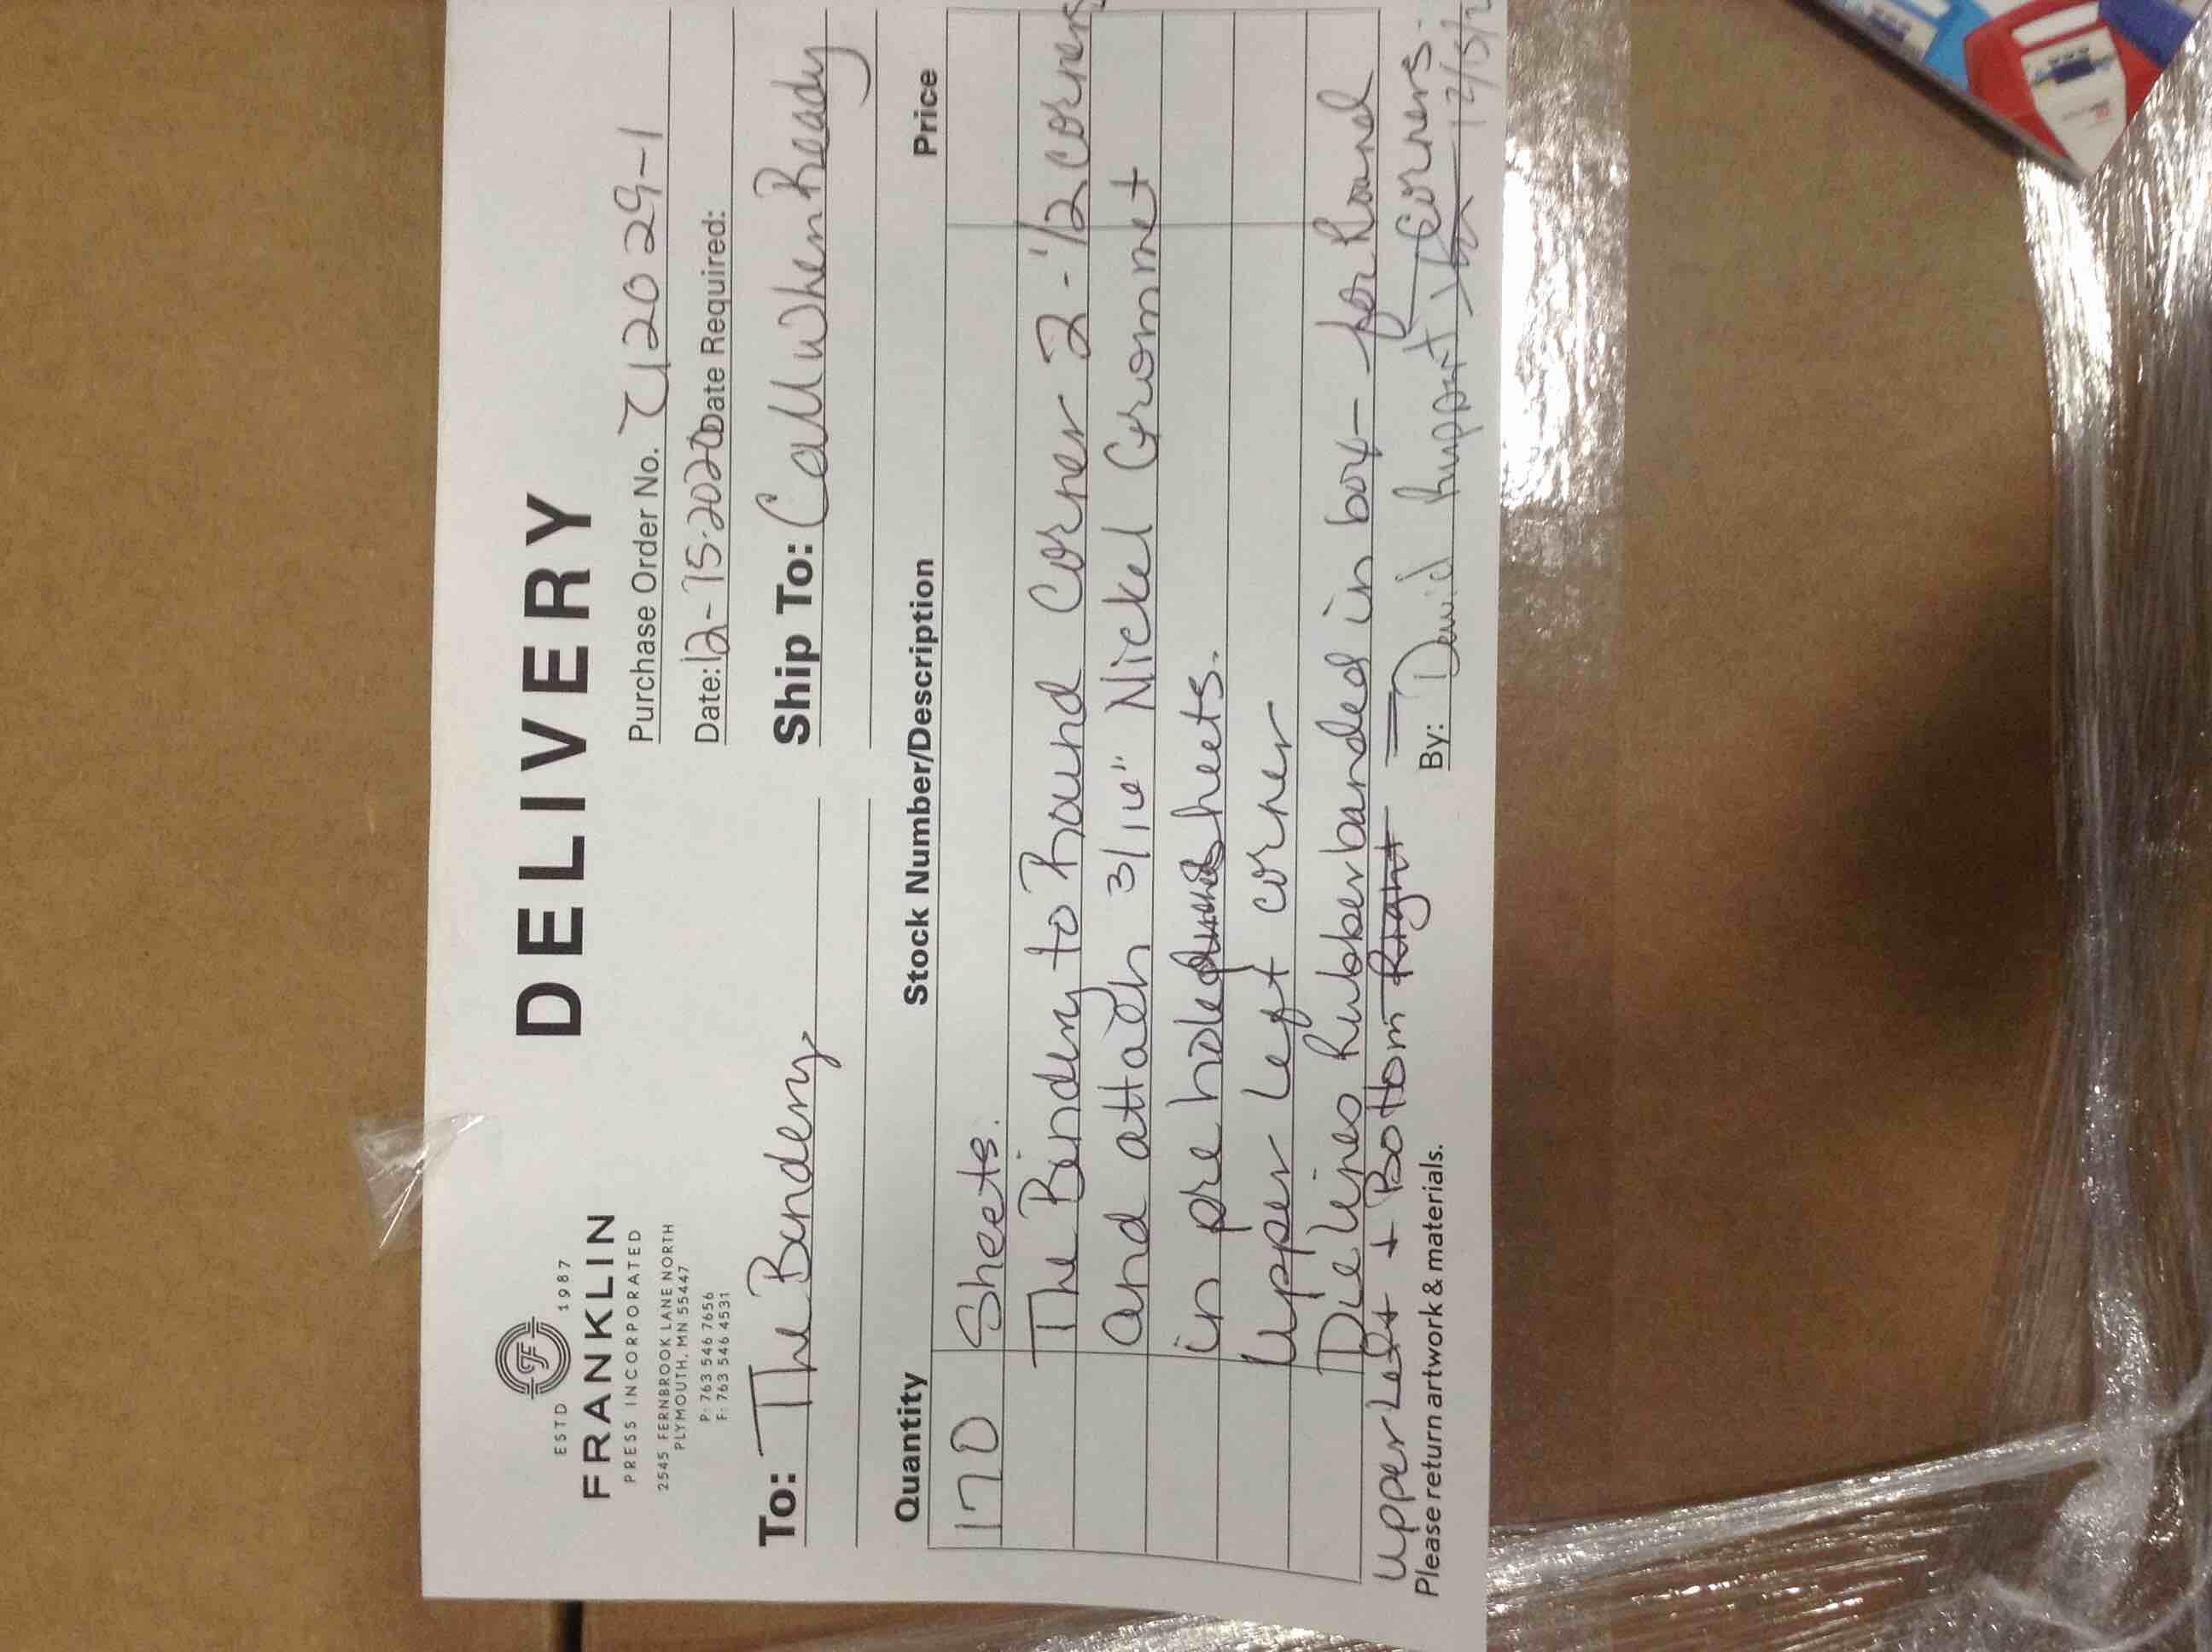 DELIVERY
ESTD 1987
FRANKLIN
PRESS INCORPORATED
2545 FERNBROOK LANE NORTH
PLYMOUTH, MN 55447
P: 763 546 7656
F: 763 546 4531
Purchase Order No. 7120 29-1
Date: 12-15-2020 Date Required:
To: The Bindery
Ship To: Call when Ready
Quantity Stock Number/Description Price
170 Sheets.
The Bindery to Round Corner 2-1/2 corners
and attach 3/16" Nickel Grommet
in pre holed sheets.
upper Left corner
Die lines Rubberbanded in box - for Round
upper Left + Bottom Right - Corners.
Please return artwork & materials.
By: David Ruppert